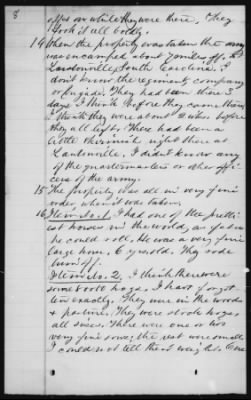 8
offs on while they were there. They
took it all boldly.
14 When the property was taken the army
was encamped about 7 miles off, at
Lawtonville, South Carolina. I
don't know the regiment company
or brigade. They had been there 3
days I think before they came there
I think they were about 2 wks. before
they all left. There had been a
little skirmish right there at
Lawtonville. I didn't know any
of the quartermasters or other offi-
cers of the army.
15 The property was all in very fine
order, when it was taken.
16 Item No. 1. I had one of the pretti-
est horses in the world, as fat as
he could roll. He was a very fine
large horse, 6 yrs old. They rode
him off.
Item No. 2. I think there were
some 8 or 10 hogs. I have forgot-
ten exactly. They were in the woods
& pasture. They were stock hogs,
all sizes. There were one or two
very fine sows; the rest were small.
I could not tell their weight. One